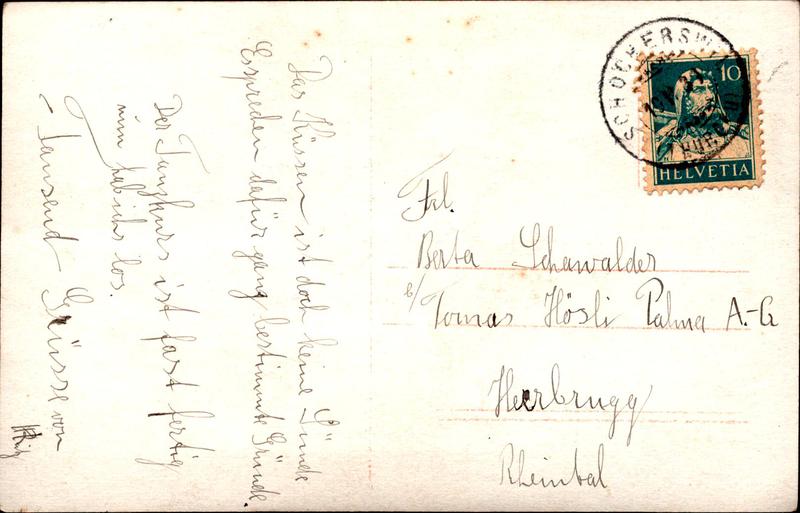 Das Küssen ist doch keine Sünde
Es spreden dafür ganz bestimmte Gründe.
Der Tanzkurs ist fast fertig
nun hab ichs los.
- Tausend Grüsse von
SCHOCKERSWIL
10
HELVETIA
Frl.
Berta Schawalder
c/
Tomas Hösli Palma A.-G
Heerbrugg
Rheintal